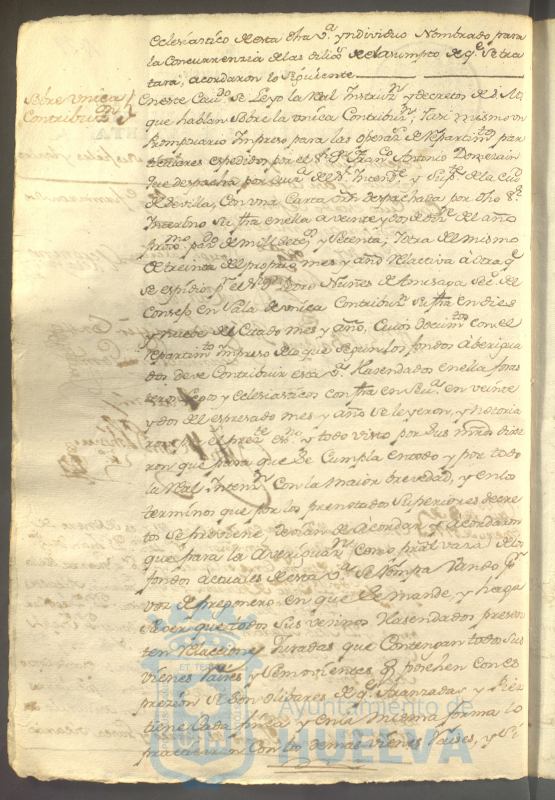 Eclesiastico de esta dha V.ª yndividuo Nombrado para
la Concurrensia de las dilig.s de el asumpto de q.e se tra
tara, acordaron lo siguiente
Sobre unica
Contribuz.n
En este Cav.do se Leyo la Real Instruz.n y Decretos de S.M.
que hablan Sobre la Vnica Contribuz.n, Y asi mismo un
Prompuario Impreso para las operaz.s de Repartim.to par
ticulares espedidos por el S.r D.n Fran.co Antonio Domesain
que despacha por el S.r Intend.te y Sup.te de la Ciu.d
de Sevilla, Con una Carta orn despachada por dho S.r
Interino Su fha en ella a veinte y dos de del año
prox.mo pas.do de mill Setec.s y Setenta; Y otra del mismo
de treinta del proprio mes y año relactiva a otra q.e
se espidio p.r el S.r D.n Pedro Nuñes de Amesaga Sec.o del
Consejo en Sala de vnica Contribuz.n Su fha en dies
y nueve del Citado mes y año, Cuios Docum.tos con el
repartim.to Impreso de lo que Segun los fondos aberigua
dos deve Contribuir esta V.ª Hasendados en ella foras
teros Legos y eclesiasticos con fha en Sev.ª en veinte
y dos del espresado mes y año se leyeron, y hizo notoria
por el prez.te es.no y todo visto por Sus mrds dixe
ron que para que Se Cumpla en todo y por todo
la Real Intenz.n Con la maior brevedad, y en los
terminos que por los prenotados Superiores decre
tos se previene, devian de Acordar y Acordaron
que para la Averiguaz.n Como prâl vasa de los
fondos actuales de esta V.ª Se Rompa Vando p.r
voz de pregonero en que se mande, y haga
saver que todos Sus vecinos Hasendados presen
ten Relaciones Juradas que Contengan todos Sus
vienes Raises y Semovientes q.e posehen con es
prezion si son olivares de q.e Aranzadas y Pies
tiene Cada Pieza y en la misma forma lo
practiquen Con los demas vienes Raises, y Si
Ayuntamiento de
HUELVA